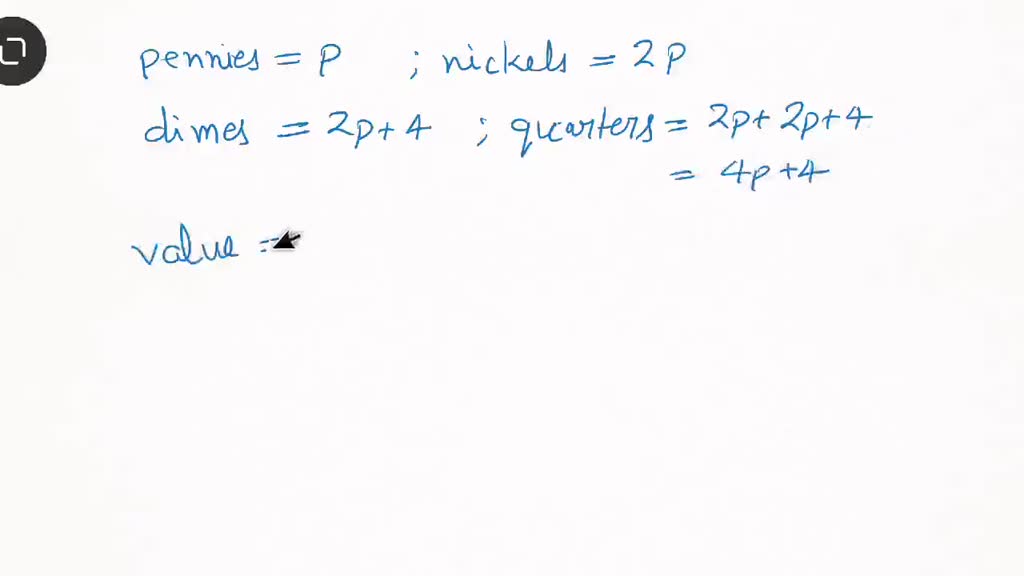 pennies = p ; nickels = 2p
dimes = 2p+4 ; quarters = 2p+ 2p+4
= 4p+4
value =